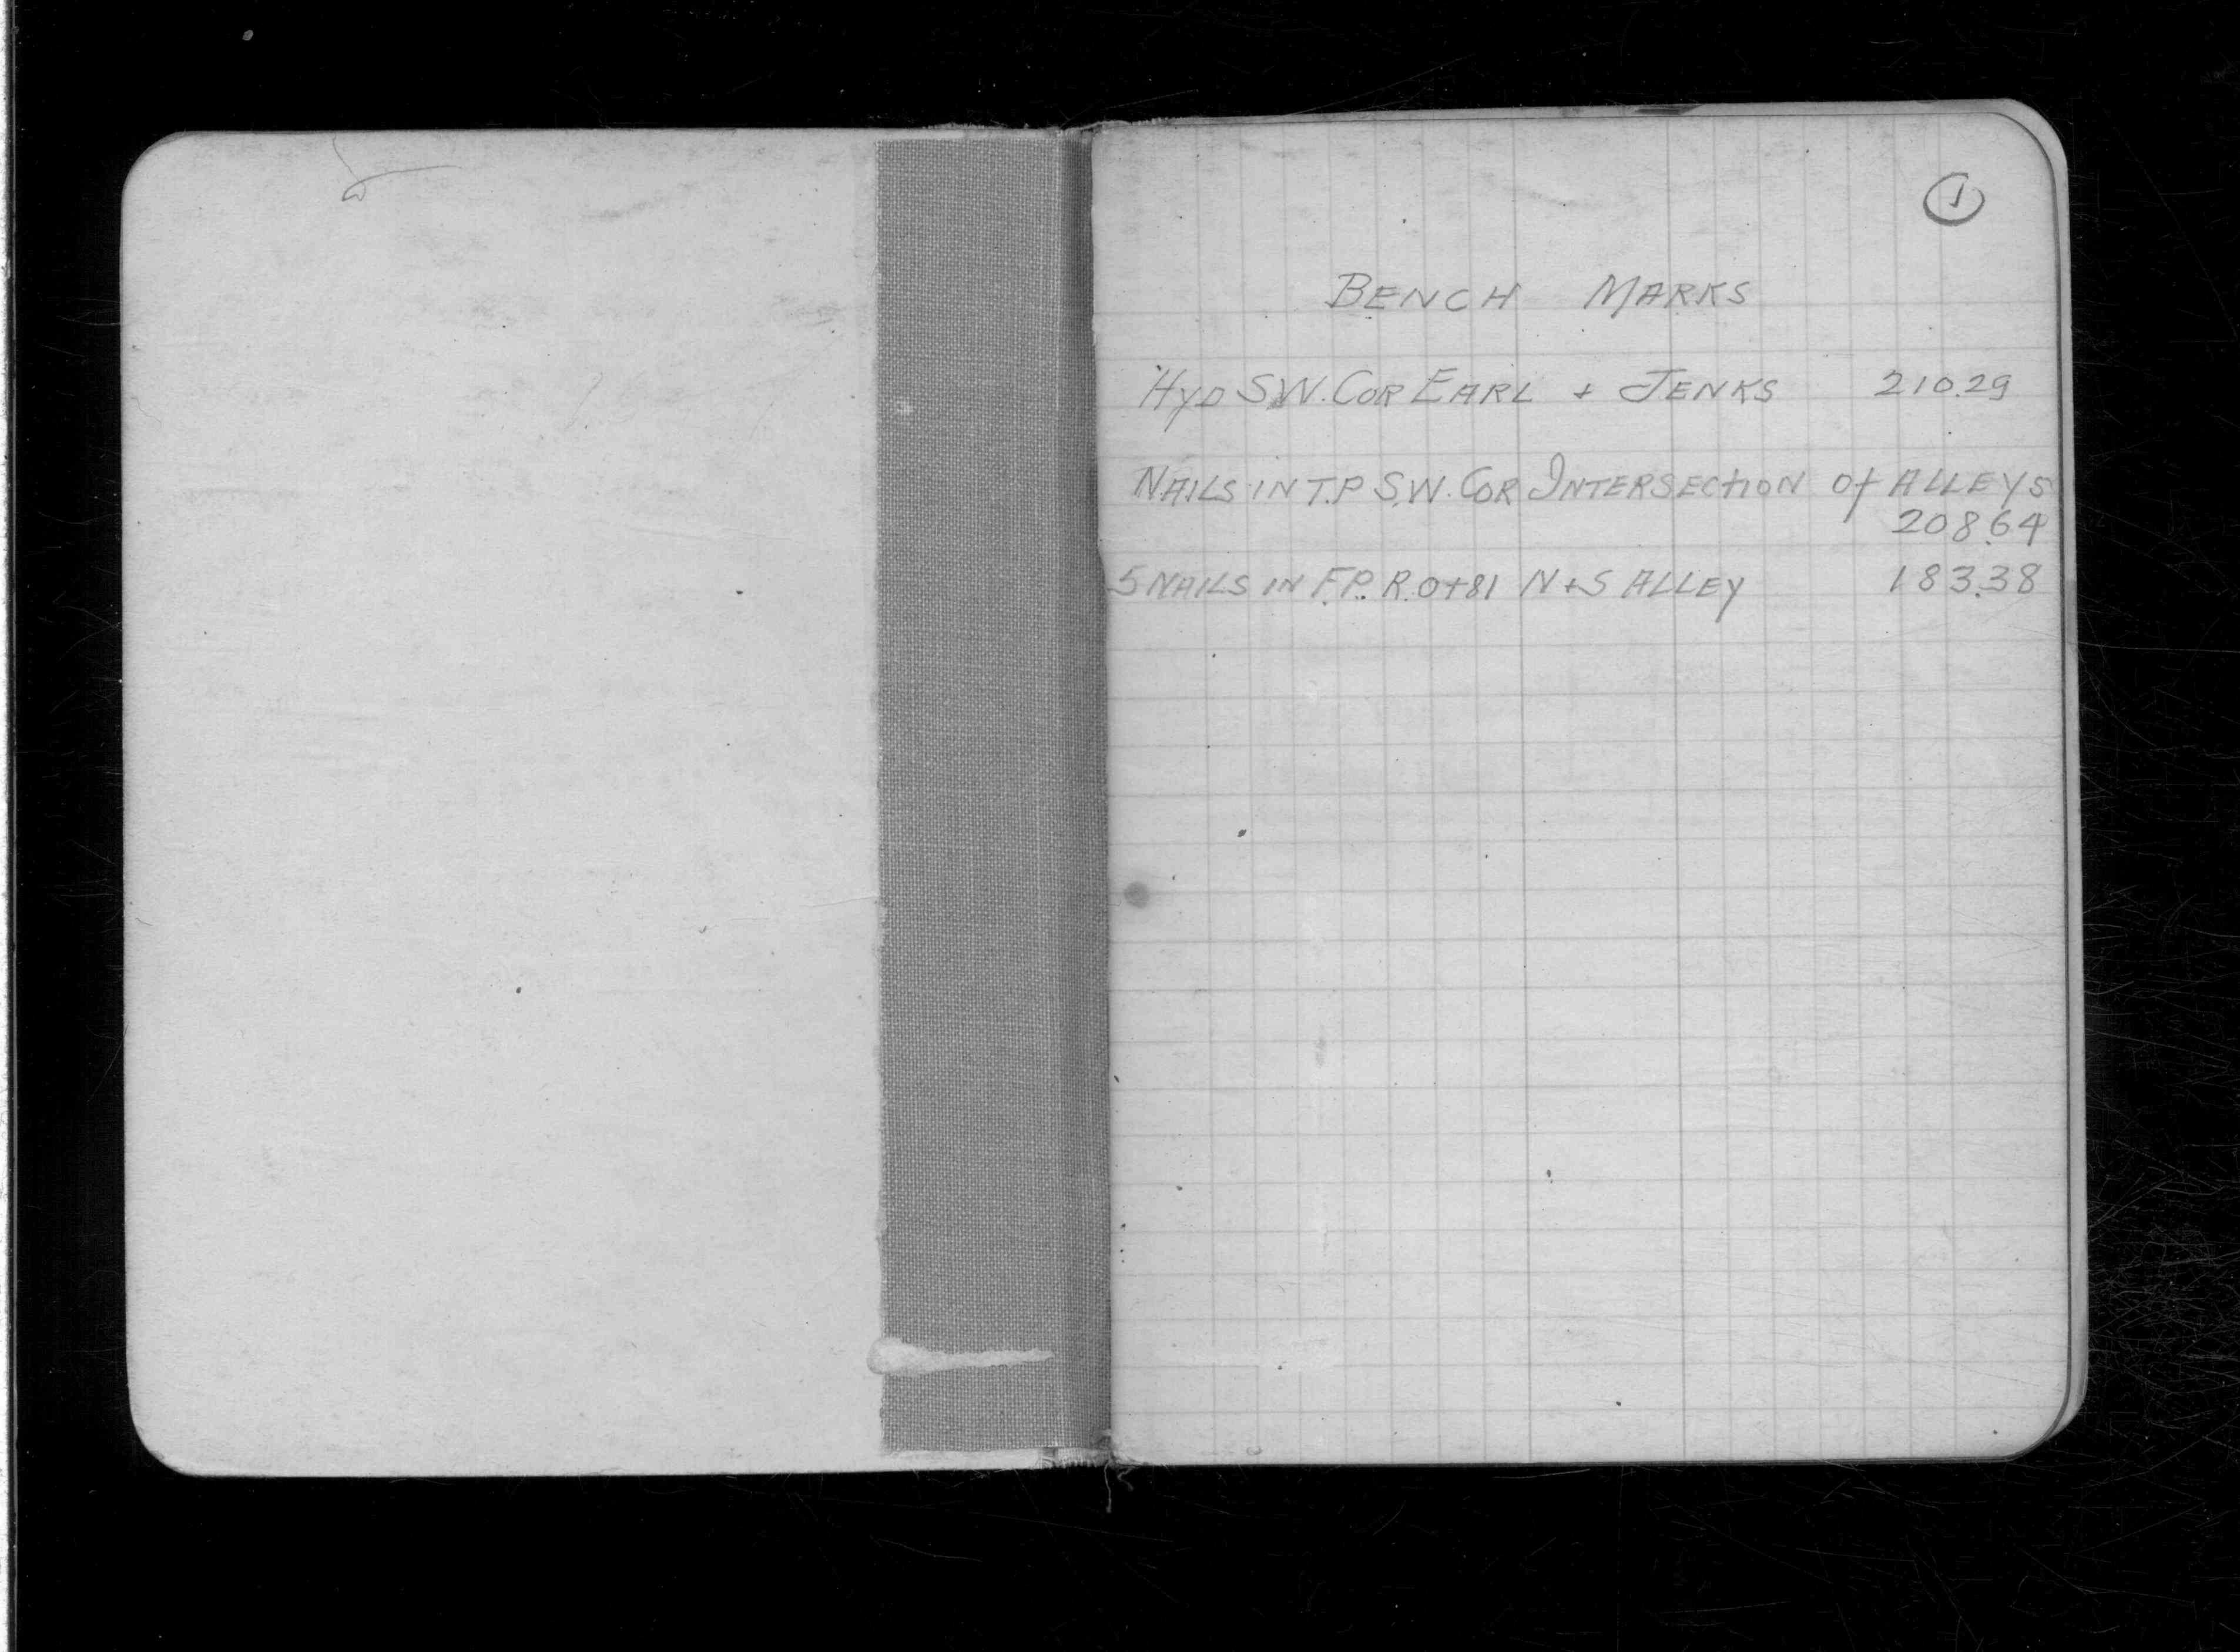 1
BENCH MARKS
HYD S.W. COR EARL + JENKS 210.29
NAILS IN T.P S.W. COR INTERSECTION Of ALLEYS
208.64
5 NAILS IN F.P. R. 0+81 N+S ALLEY 183.38